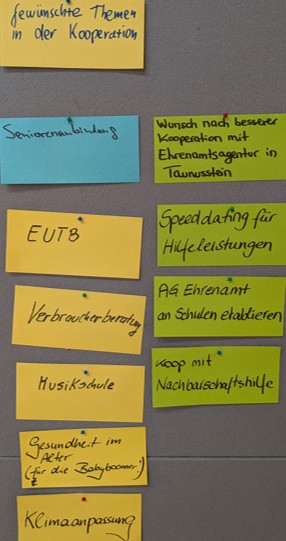 gewünschte Themen
in der Kooperation
Seniorenanbindung
EUTB
Verbraucherberatung
Musikschule
Gesundheit im
Alter
(für die Babyboomer!)
Klimaanpassung
Wunsch nach besserer
Kooperation mit
Ehrenamtsagentur in
Taunusstein
Speeddating für
Hilfeleistungen
AG Ehrenamt
an Schulen etablieren
Koop mit
Nachbarschaftshilfe